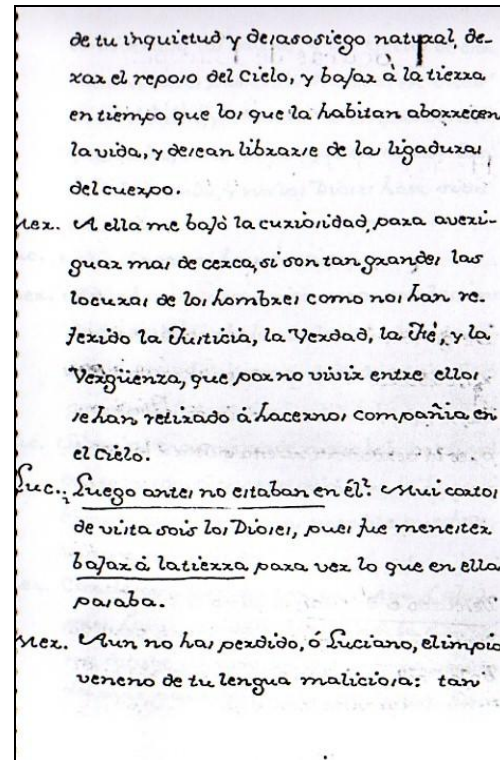 de tu inquietud y desasosiego natural, de-
xar el reposo del Cielo, y bajar à la tierra
en tiempo que los que la habitan aborrecen
la vida, y desean librarse de las ligaduras
del cuerpo.
Mer. A ella me bajò la curiosidad, para averi-
guar mas de cerca, si son tan grandes las
locuras de los hombres como nos han re-
ferido la Justicia, la Verdad, la Fé, y la
Vergüenza, que por no vivir entre ellos
se han retirado á hacernos compañia en
el Cielo.
Luc. ¿Luego antes no estaban en él? Mui cortos
de vista sois los Dioses, pues fue menester
bajar á la tierra para ver lo que en ella
pasaba.
Mer. Aun no has perdido, ó Luciano, el impio
veneno de tu lengua maliciosa: tan